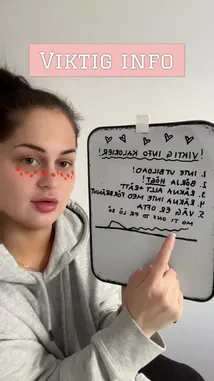 VIKTIG INFO
! VIKTIG INFO KALORIER!
1. INTE UTBILDAD!
2. BÖRJA HÖGT!
3. RÄKNA ALLT ÄTBART
4. RÄKNA INTE MED FÖRBRÄNT
5. VÄG ER OFTA
MO TI ONS TO FR LÖ SÖ